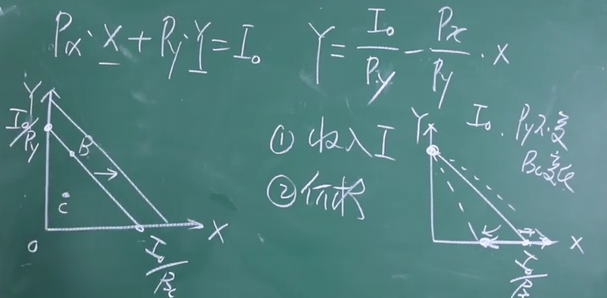 Px·X + Py·Y = I₀
Y = I₀/Py - Px/Py · X
Y
I₀/Py
B
C
O
I₀/Px
X
① 收入 I
② 价格
I₀. Py不变
Y
X
I₀/Px